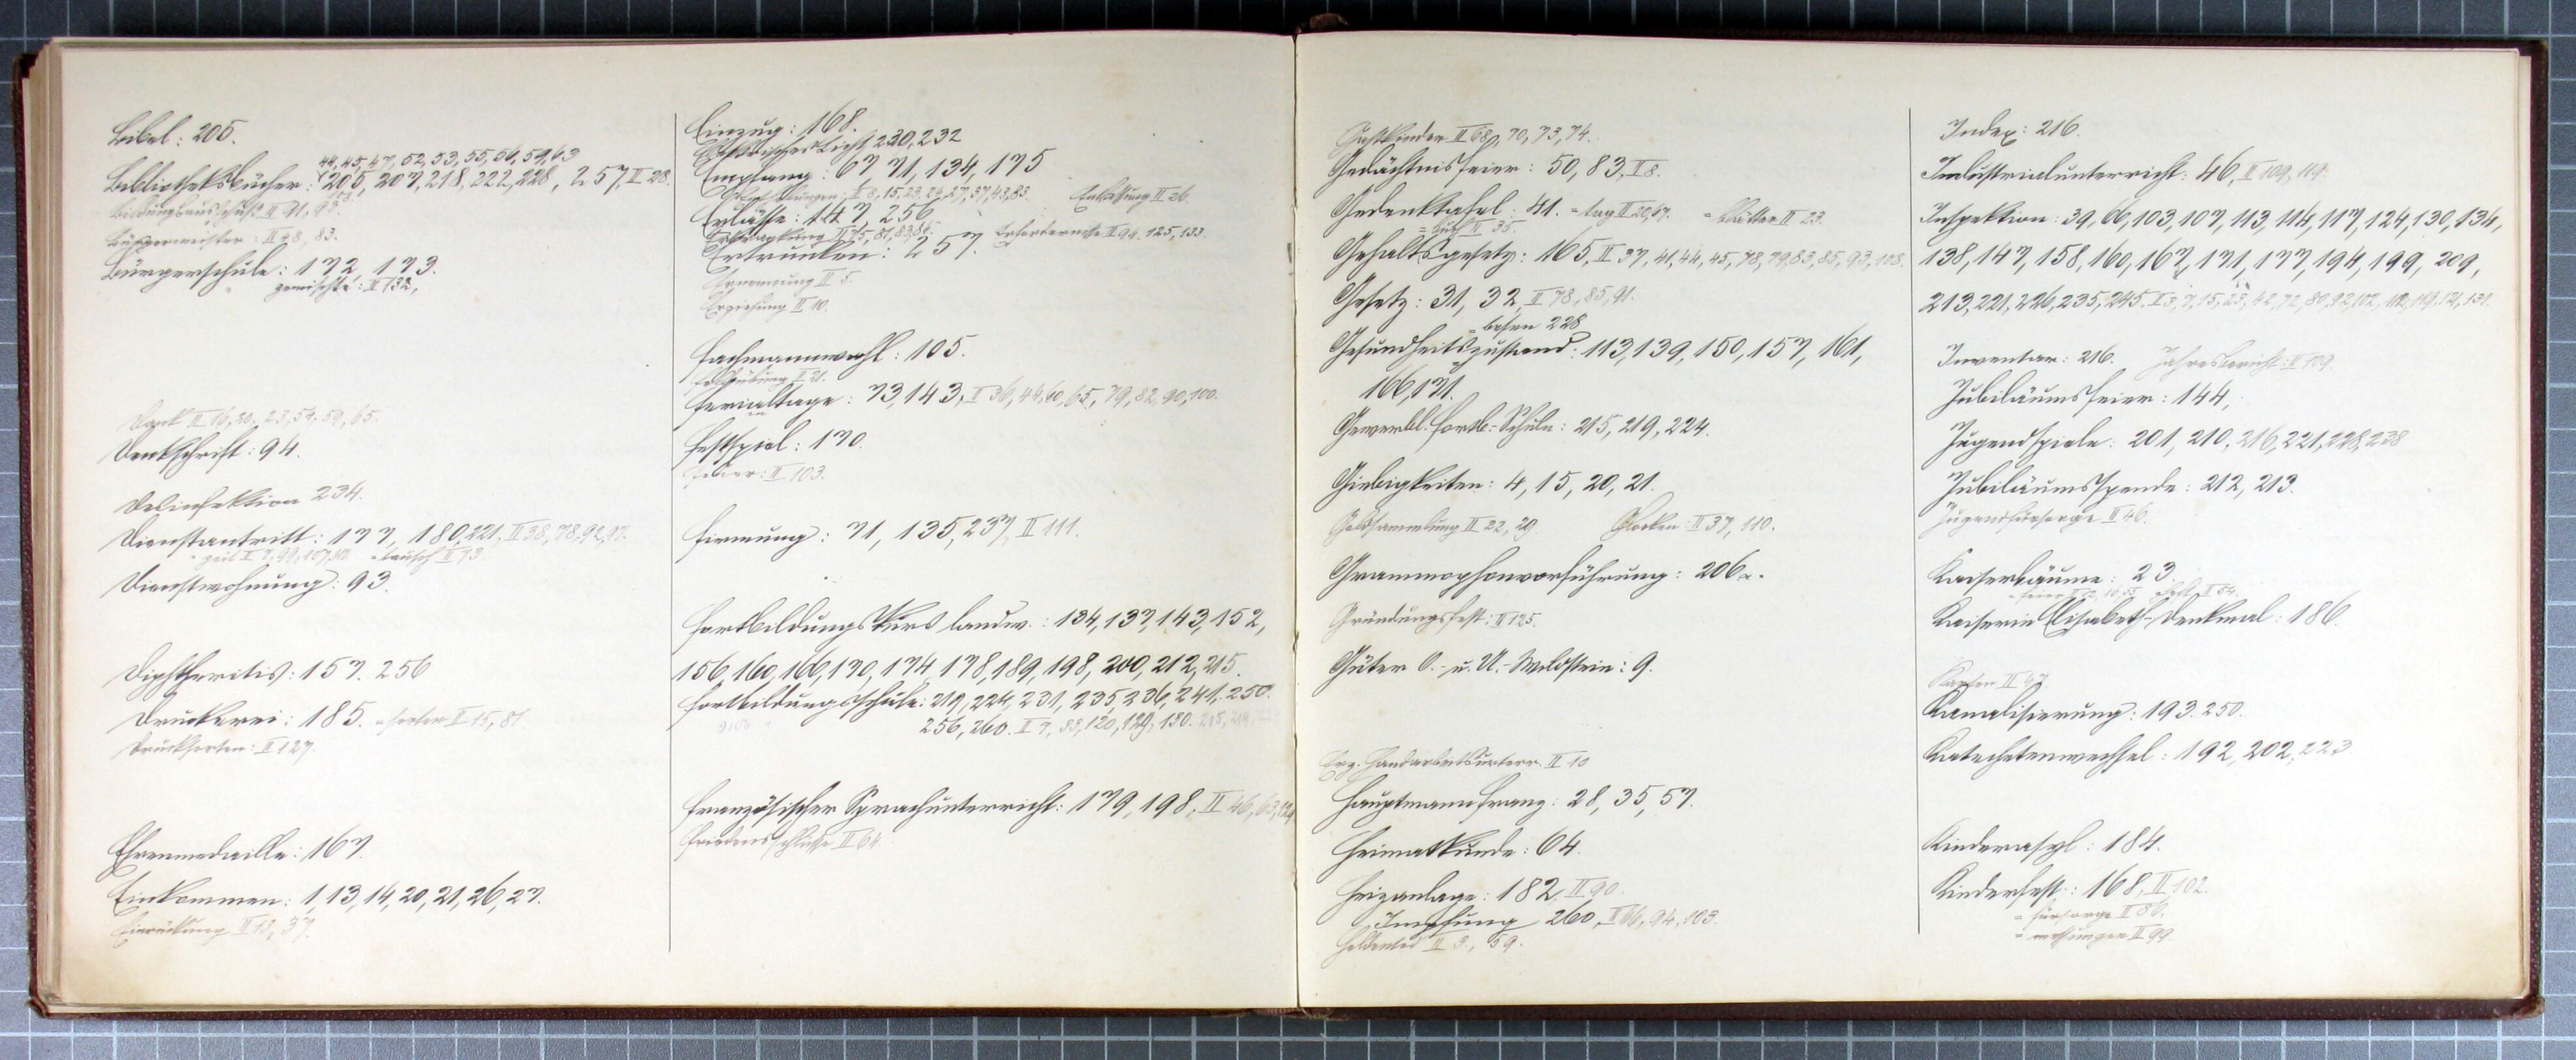 Bibel: 205.
44, 45, 47, 52, 53, 55, 56, 59, 63
Bibliotheksbücher: 205, 207, 218, 222, 228, 257, II 28.
Bildungsausschuß II 91, 93.
Bürgermeister: II 48, 83.
Bürgerschule: 172, 173.
" gemischte: II 132,
Dank II 16, 20, 23, 54, 59, 65.
Denkschrift: 94.
Desinfektion 234.
Dienstantritt: 177, 180, 221, II 38, 78, 92, 97.
- tausch II 73
Dienstwohnung: 93.
Diphtheritis: 157. 256
Druckerei: 185. - sorten II 15, 81
Drucksorten: II 127.
Ehrenmedaille: 167.
Einkommen: 1, 13, 14, 20, 21, 26, 27.
Einrückung II 13, 37.
Einzug: 168.
Elektrisches Licht 230, 232
Empfang: 67, 71, 134, 175
Entlassung II 26.
Erlässe: 147, 256
Erkrankung II 75, 81, 83, 84. Erfordernisse II 94, 125, 133.
Ertrunken: 257.
Ernennung II 5.
Erziehung II 10.
Fachmannwahl: 105.
II 21.
Ferialtage: 73, 143, II 36, 44, 60, 65, 79, 82, 90, 100.
Festspiel: 170.
Feier: II 103.
Firmung: 71, 135, 237, II 111.
Fortbildungskurs landw.: 134, 137, 143, 152,
156, 160, 166, 170, 174, 178, 189, 198, 200, 212, 215.
Fortbildungsschule: 219, 224, 231, 235, 236, 241, 250.
256, 260. II 7, 88, 120, 129, 130. 215, 219,
Französischer Sprachunterricht: 179, 198, II 46, 63, 129
Friedensschlüsse II 64.
Gastkinder II 68, 70, 73, 74.
Gedächtnisfeier: 50, 83, II 8.
Gedenktafel: 41. - tag II 20, 67. - blätter II 23.
- buch II 35.
Gehaltsgesetz: 165, II 37, 41, 44, 45, 78, 79, 83, 85, 93, 108.
Gesetz: 31, 32, II 78, 85, 91.
228
Gesundheitszustand: 113, 139, 150, 157, 161,
166, 171.
Gewerbl. Fortb.-Schule: 215, 219, 224.
Giebigkeiten: 4, 15, 20, 21.
Goldsammlung II 22, 29. Glocken: II 37, 110.
Grammophonvorführung: 206 a.
Gründungsfest: II 125.
Güter O.- u. U.-Wildstein: 9.
Handarbeitsunterr. II 10
Hauptmann Franz: 28, 35, 57.
Heimatkunde: 64.
Heizanlage: 182, II 90.
Impfung 260, II 66, 94, 103.
Heldentod II 3, 59.
Index: 216.
Industrialunterricht: 46, II 109, 119.
Inspektion: 39, 66, 103, 107, 113, 114, 117, 124, 130, 134,
138, 147, 158, 160, 167, 171, 177, 194, 199, 209,
213, 221, 226, 235, 245, II 3, 7, 15, 23, 42, 72, 80, 92, 102, 112, 119, 121, 131.
Inventar: 216. Jahresbericht: II 109.
Jubiläumsfeier: 144,
Jugendspiele: 201, 210, 216, 221, 228, 238
Jubiläumsspende: 212, 213.
Jugendfürsorge II 46.
Kaiserbäume: 23.
Kaiserin Elisabeth-Denkmal: 186.
Karten II 47.
Kanalisierung: 193. 250.
Katechetenwechsel: 192, 202, 223
Kinderasyl: 184.
Kinderfest: 168, II 102.
- fürsorge II 86.
- messungen II 99.